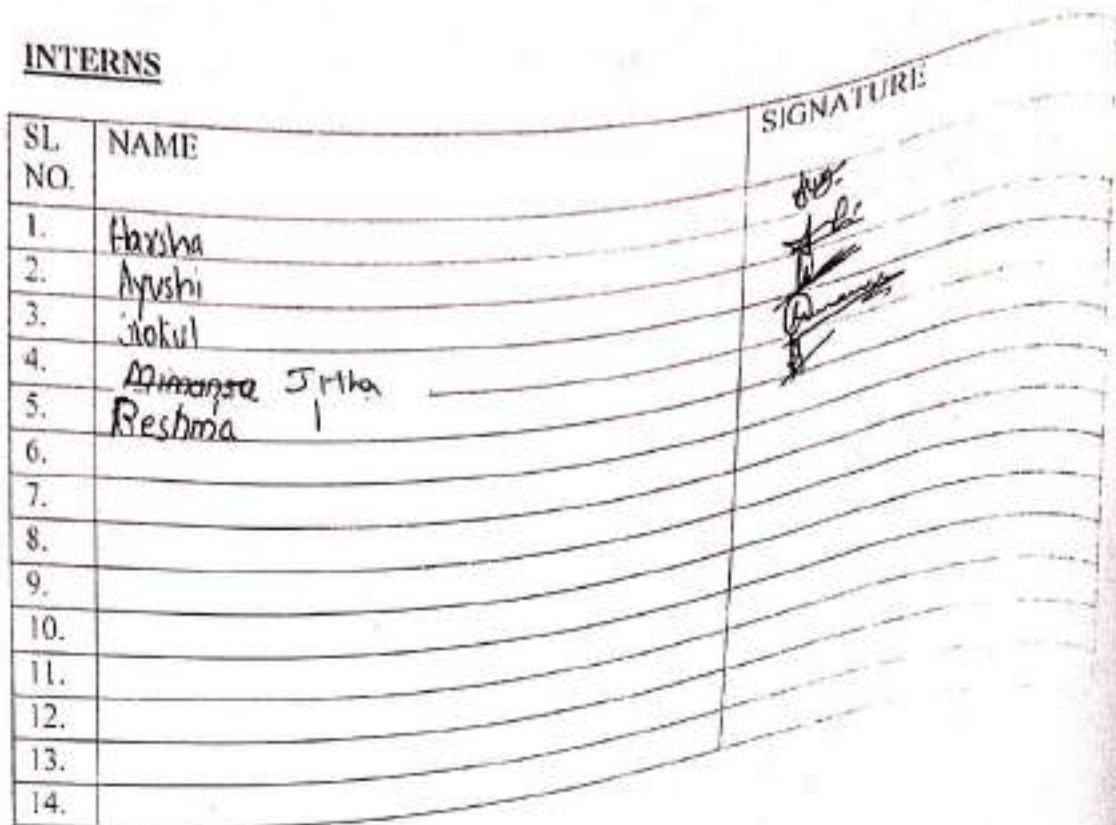 INTERNS
SL NO. NAME SIGNATURE
1. Harsha
2. Ayushi
3. Gokul
4. Mimansa
5. Reshma
6.
7.
8.
9.
10.
11.
12.
13.
14.